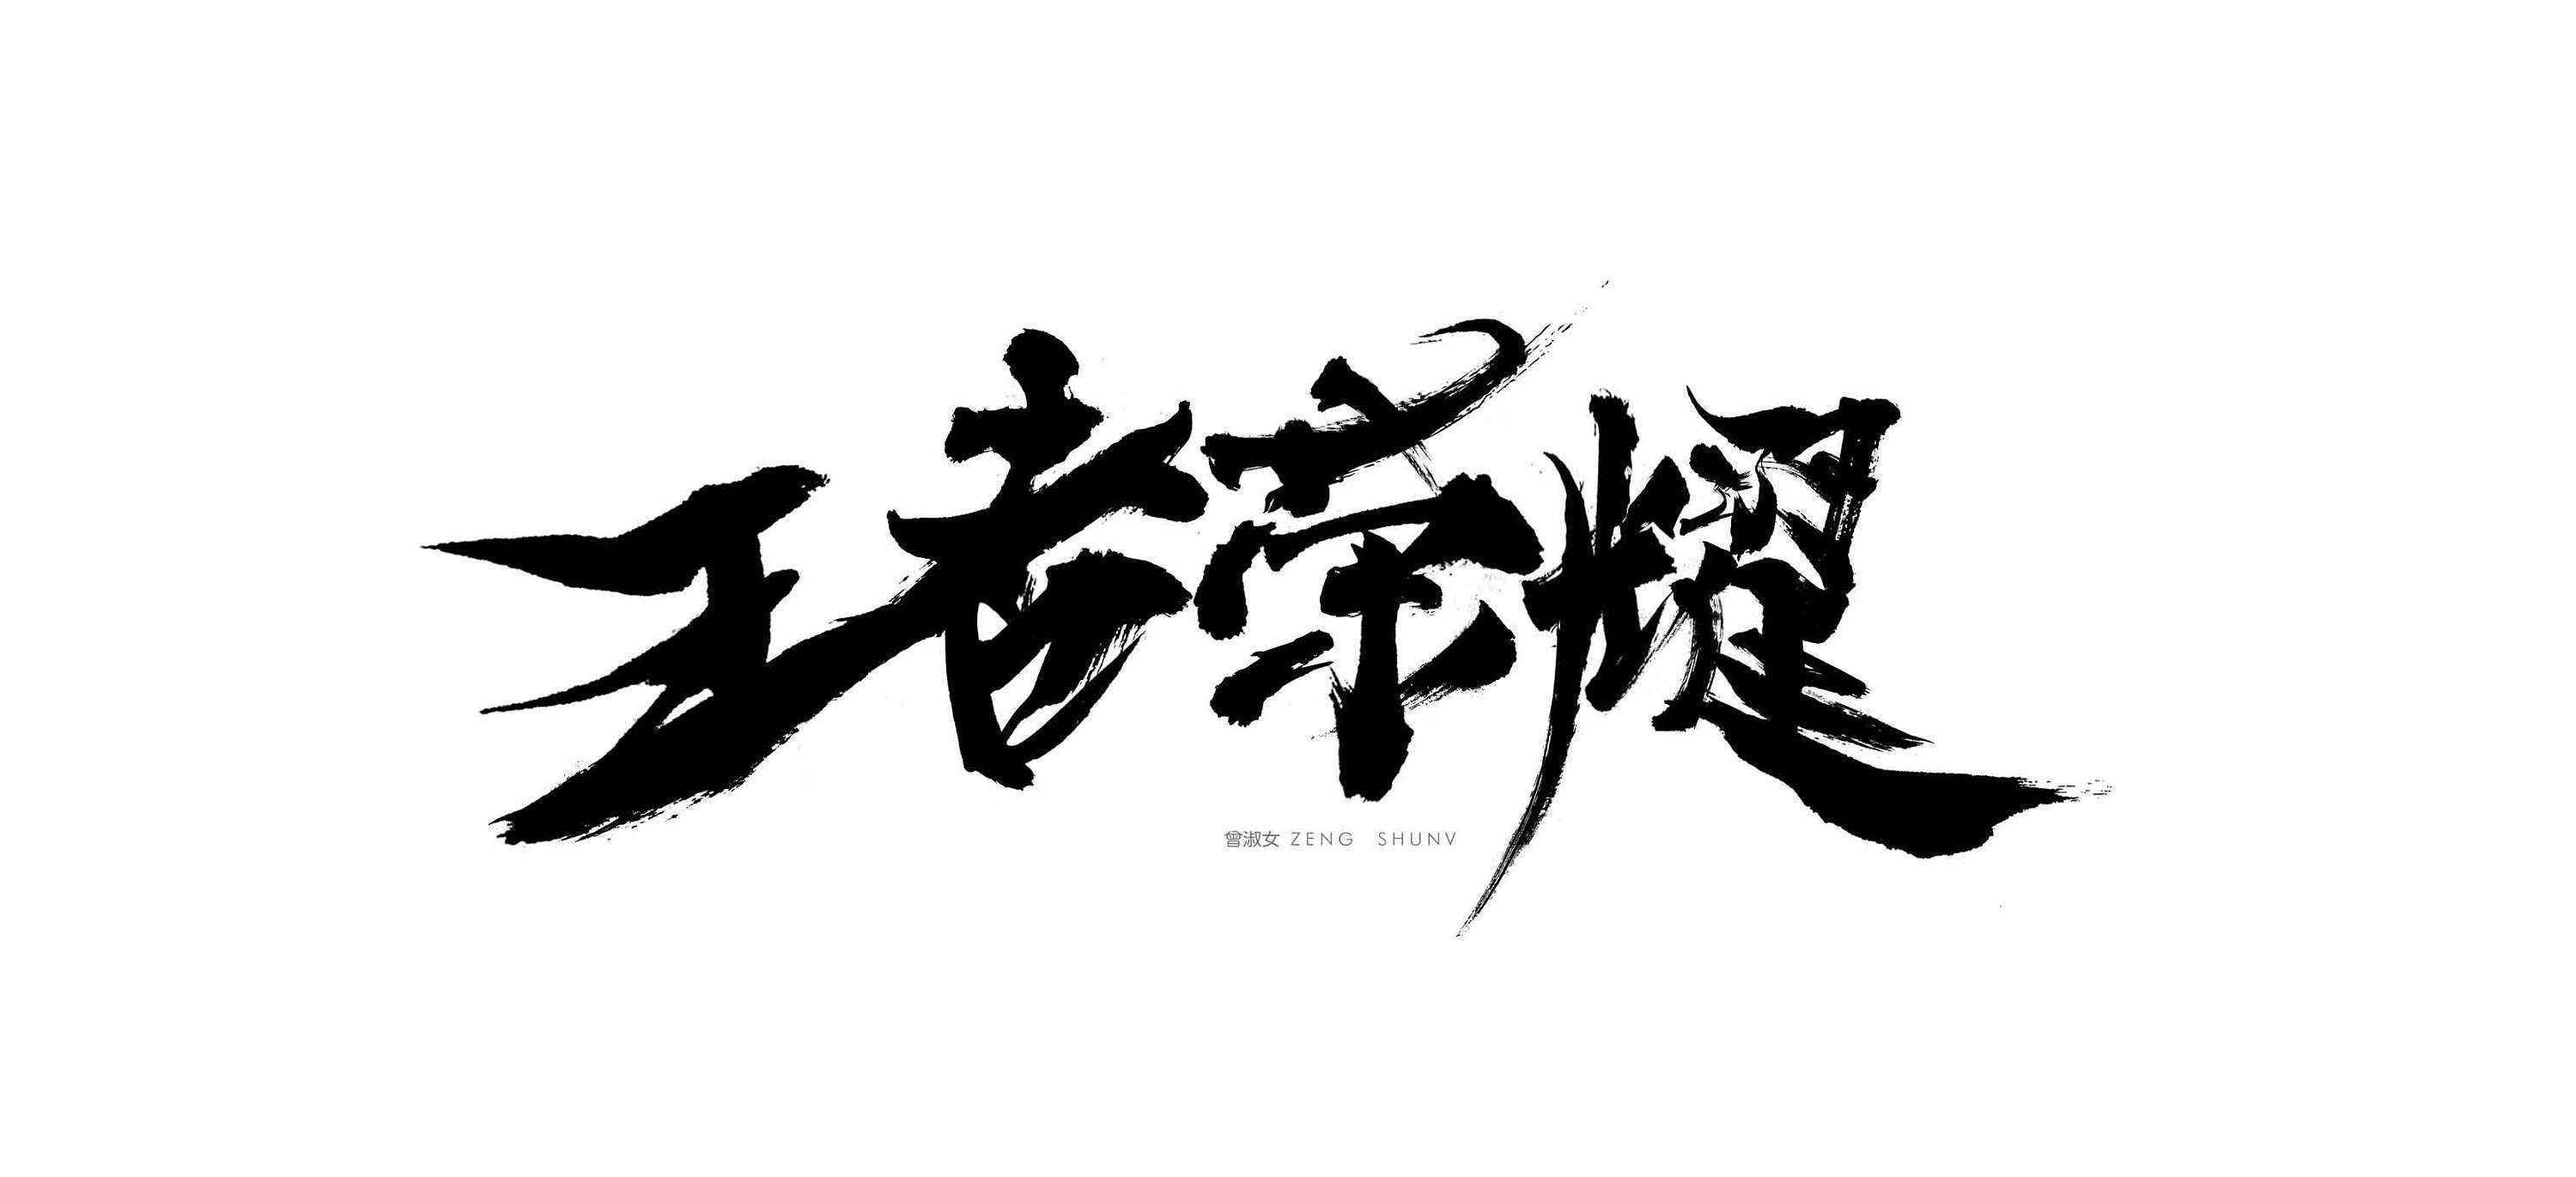 王者荣耀
曾淑女 ZENG SHUNV